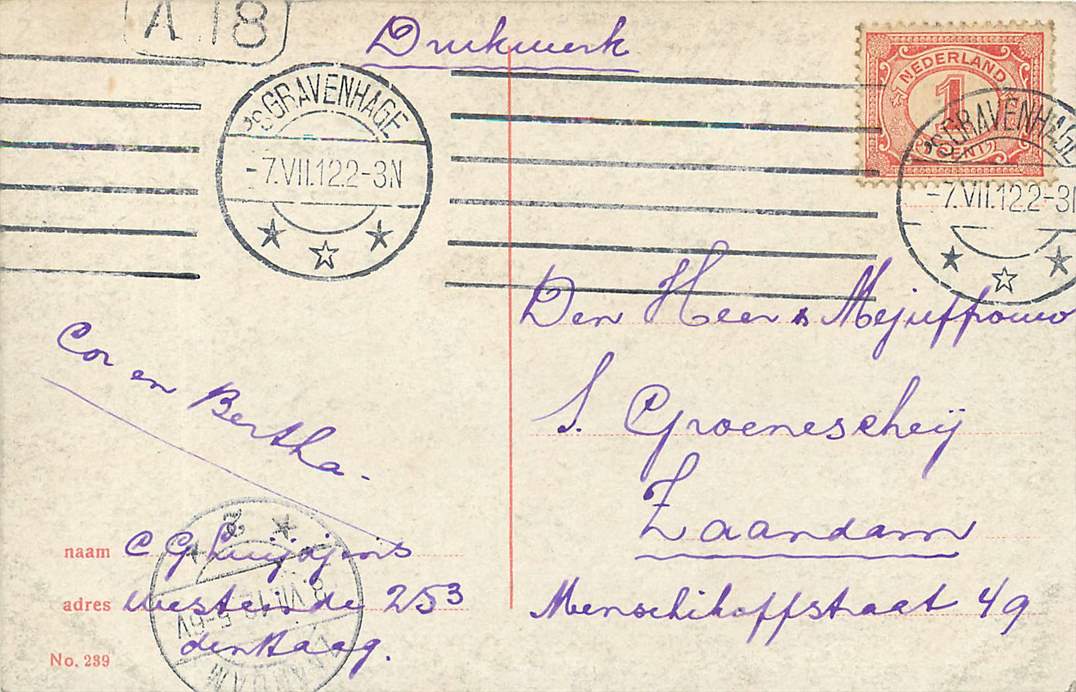 A 18
Drukwerk
NEDERLAND
1
CENT
'SGRAVENHAGE
-7.VII.12.2-3N
'SGRAVENHAGE
-7.VII.12.2-3N
Den Heer & Mejuffrouw
S. Groenescheij
Zaandam
Menschikoffstraat 49
Cor en Bertha.
naam C G
adres Westeinde 253
den Haag.
No. 239
2
8.VII.12.5-6V
ZAANDAM